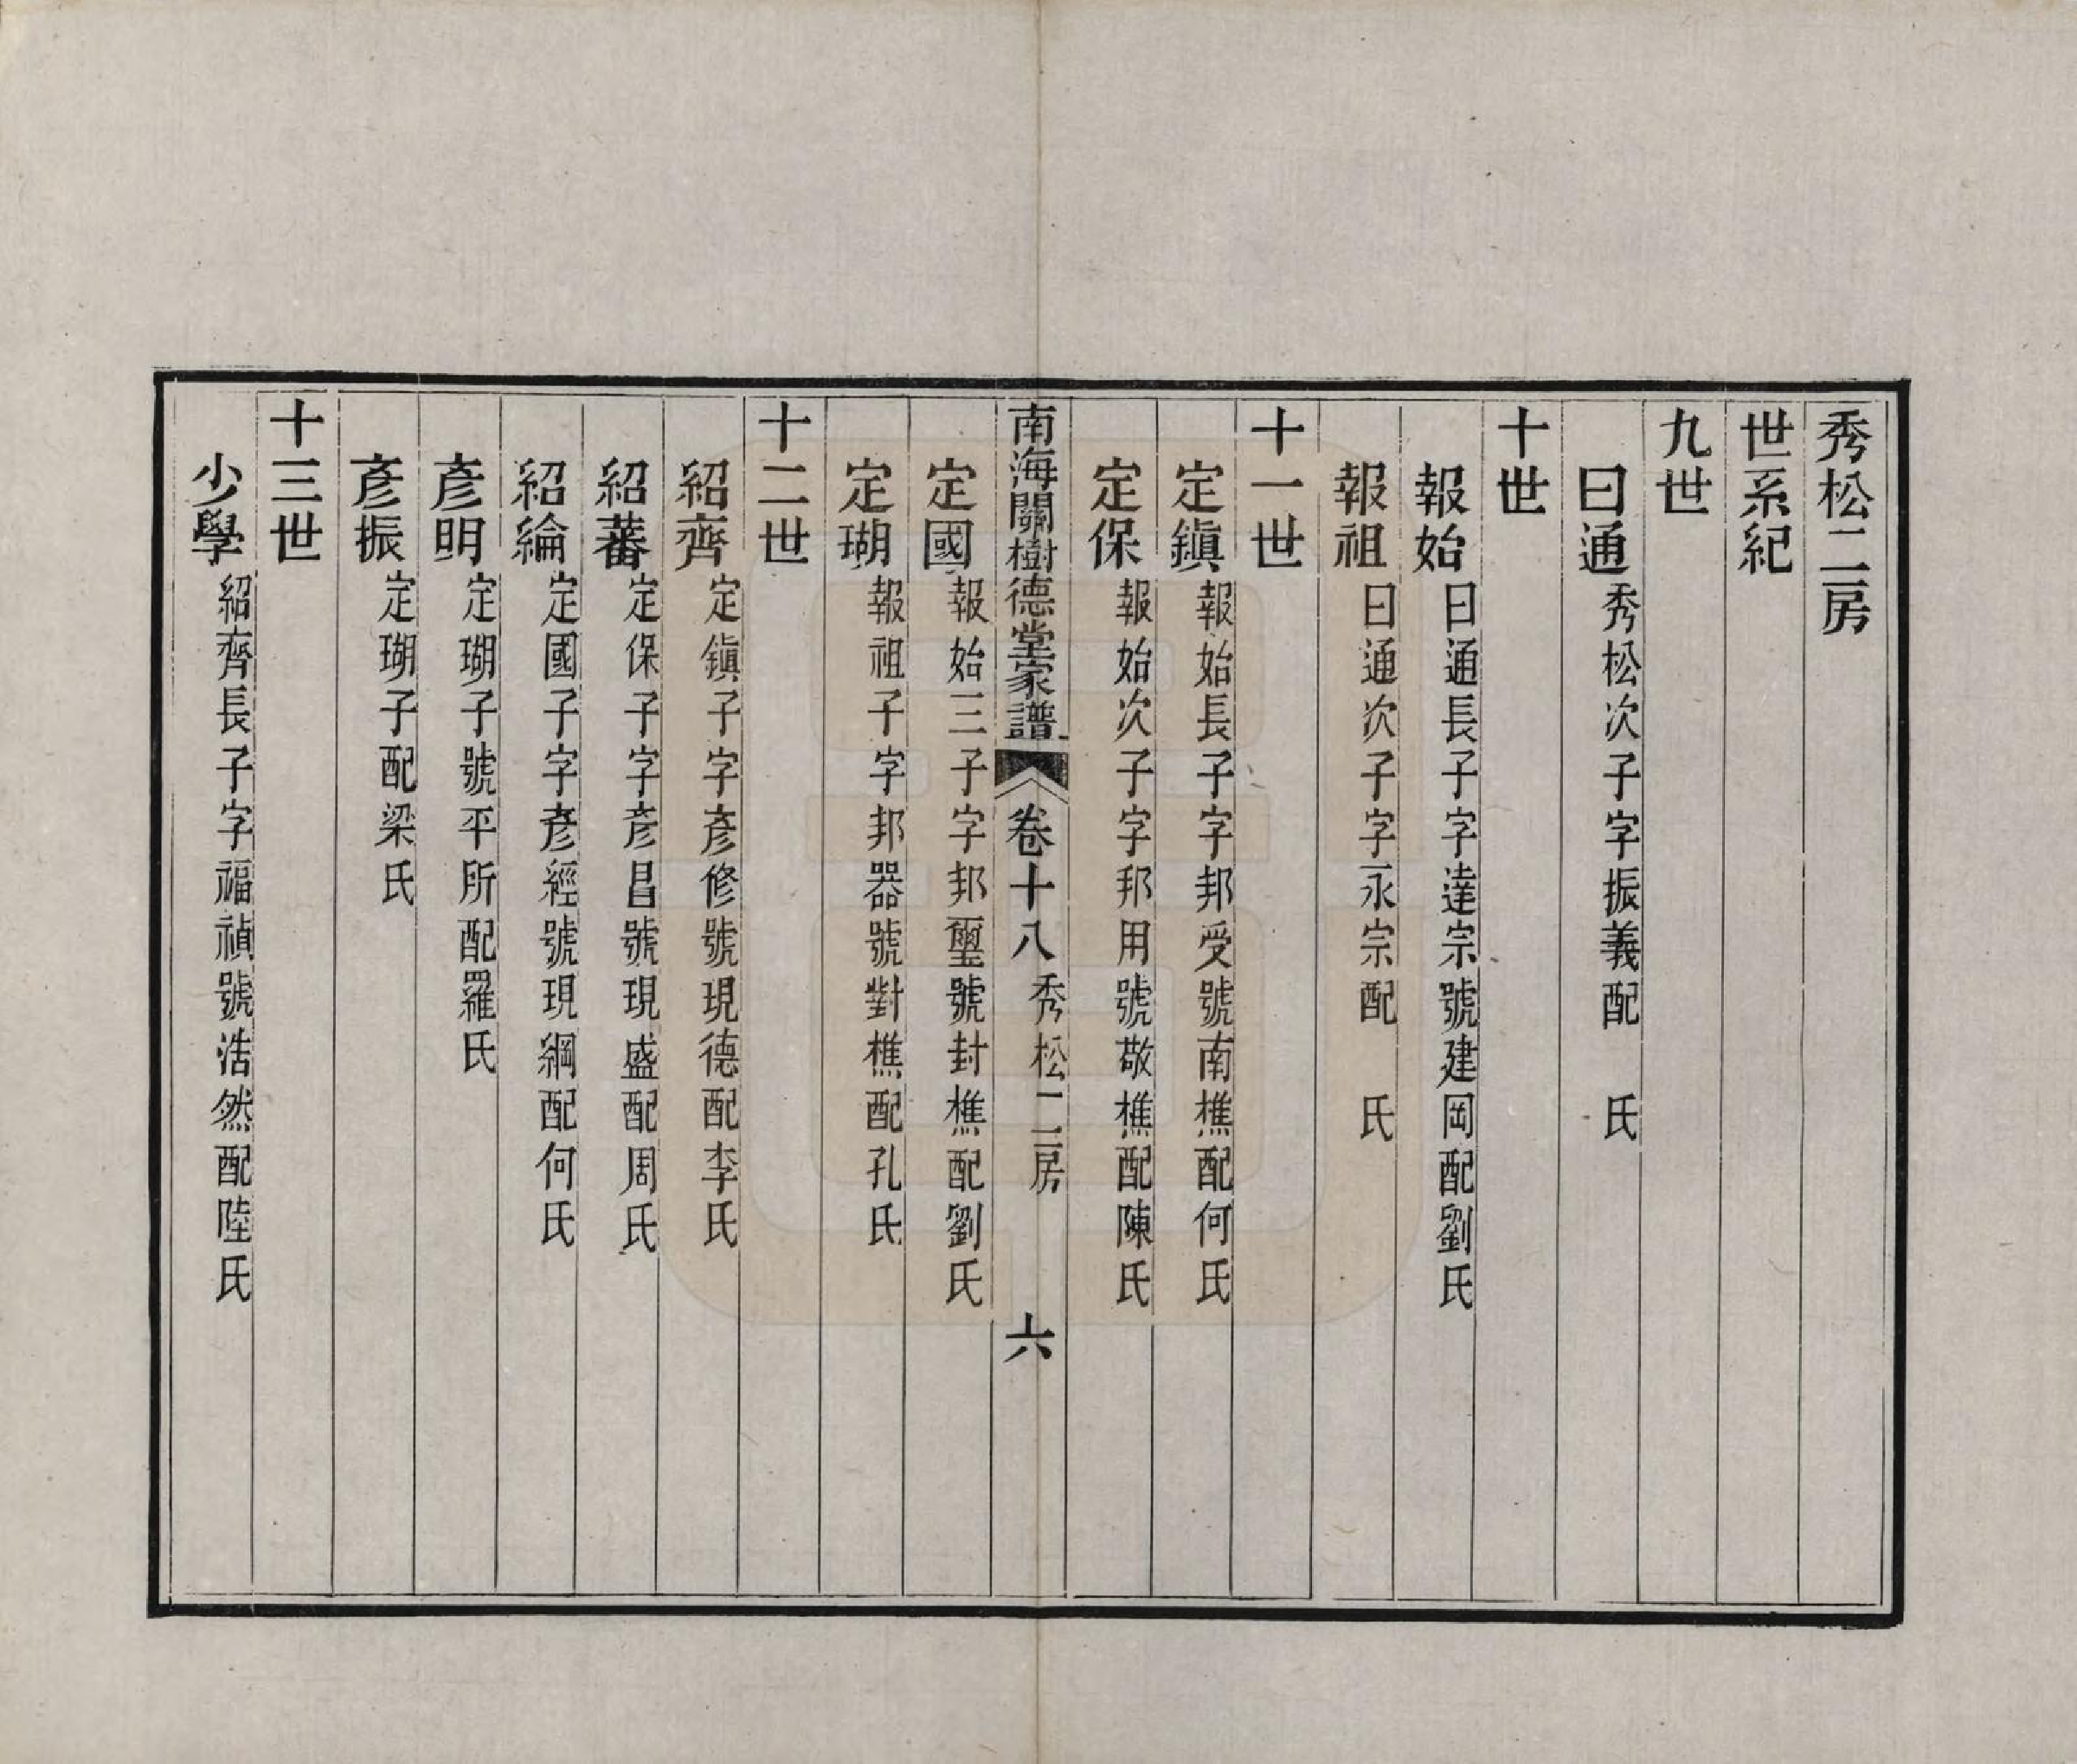 秀松二房
世系紀
九世
曰通秀松次子字振義配　氏
十世
報始曰通長子字達宗號建岡配劉氏
報祖曰通次子字永宗配　氏
十一世
定鎭報始長子字邦受號南樵配何氏
定保報始次子字邦用號敬樵配陳氏
南海關樹德堂家譜　卷十八　秀松二房　六
定國報始三子字邦璽號封樵配劉氏
定瑚報祖子字邦器號對樵配孔氏
十二世
紹齊定鎭子字彥修號現德配李氏
紹蕃定保子字彥昌號現盛配周氏
紹綸定國子字彥經號現綱配何氏
彥明定瑚子號平所配羅氏
彥振定瑚子配梁氏
十三世
少學紹齊長子字福禎號浩然配陸氏